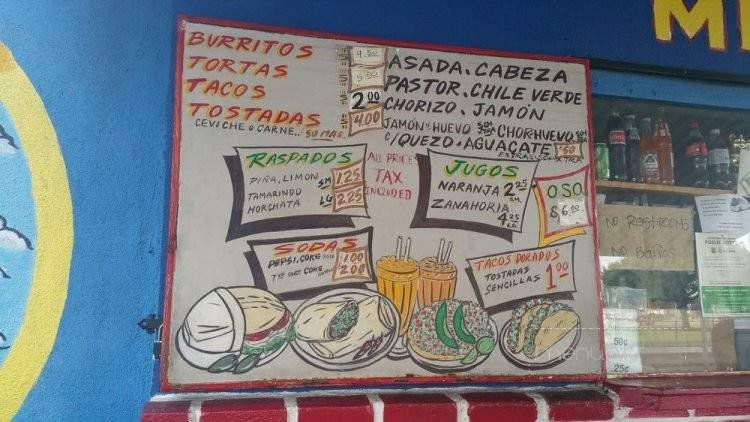 BURRITOS 4.50
TORTAS 5.00
TACOS 2.00
TOSTADAS 4.00
CEVICHE O CARNE.. 50 MAS
ASADA. CABEZA
PASTOR. CHILE VERDE
CHORIZO. JAMÓN
JAMÓN Y HUEVO CHOR-HUEVO
C/QUEZO. AGUACATE .50
EXTRA
RASPADOS
PIÑA, LIMON SM 1.25
TAMARINDO
HORCHATA LG 2.25
ALL PRICES
TAX
INCLUDED
JUGOS
NARANJA 2.25 SM.
ZANAHORIA
4.25 LG.
OSO
$6.00
SODAS
PEPSI. COKE 1.00
DIET COKE 2.00
TACOS DORADOS
TOSTADAS
SENCILLAS 1.00
ME
NO RESTROOMS
NO BAÑOS
50¢
25¢